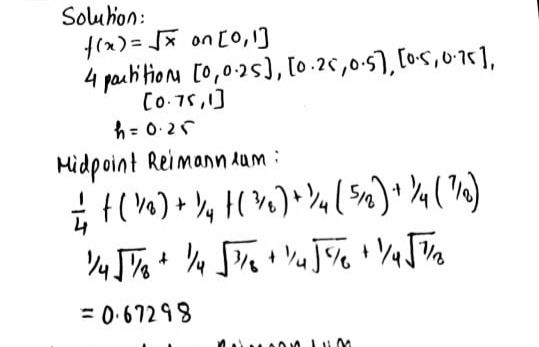 Solution:
f(x) = √x on [0,1]
4 partitions [0, 0.25], [0.25, 0.5], [0.5, 0.75],
[0.75, 1]
h = 0.25
Midpoint Reimann sum :
1/4 f(1/8) + 1/4 f(3/8) + 1/4 (5/8) + 1/4 (7/8)
1/4 √1/8 + 1/4 √3/8 + 1/4 √5/8 + 1/4 √7/8
= 0.67298